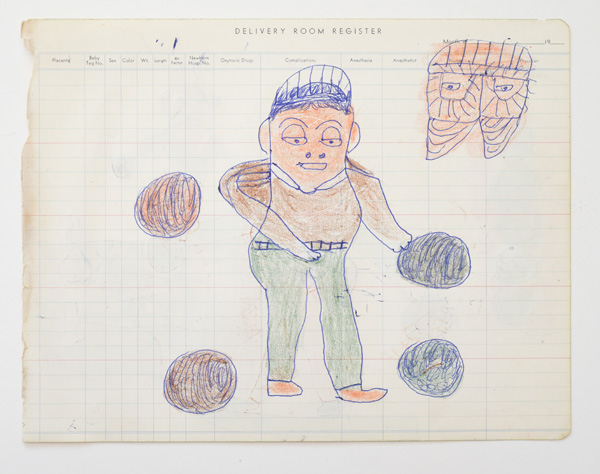 DELIVERY ROOM REGISTER
19
Placenta Baby Tag No. Sex Color Wt. Length Newborn Hosp. No. Oxytocic Drugs Complications Anesthesia Anesthetist